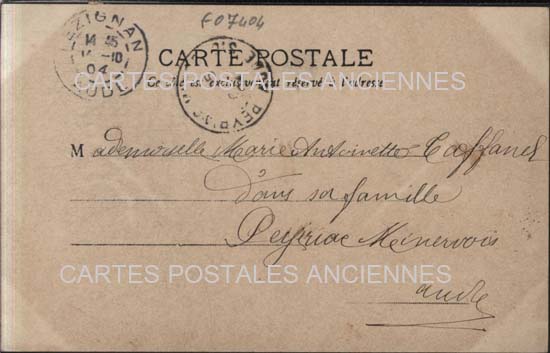 F07404
LEZIGNAN
14 15
14 -10
04
AUDE
CARTE POSTALE
Ce côté est exclusivement réservé à l'adresse
CARTES POSTALES ANCIENNES
Mademoiselle Marie Antoinette Caffanel
Dans sa famille
Peyriac Minervois
CARTES POSTALES ANCIENNES
aude